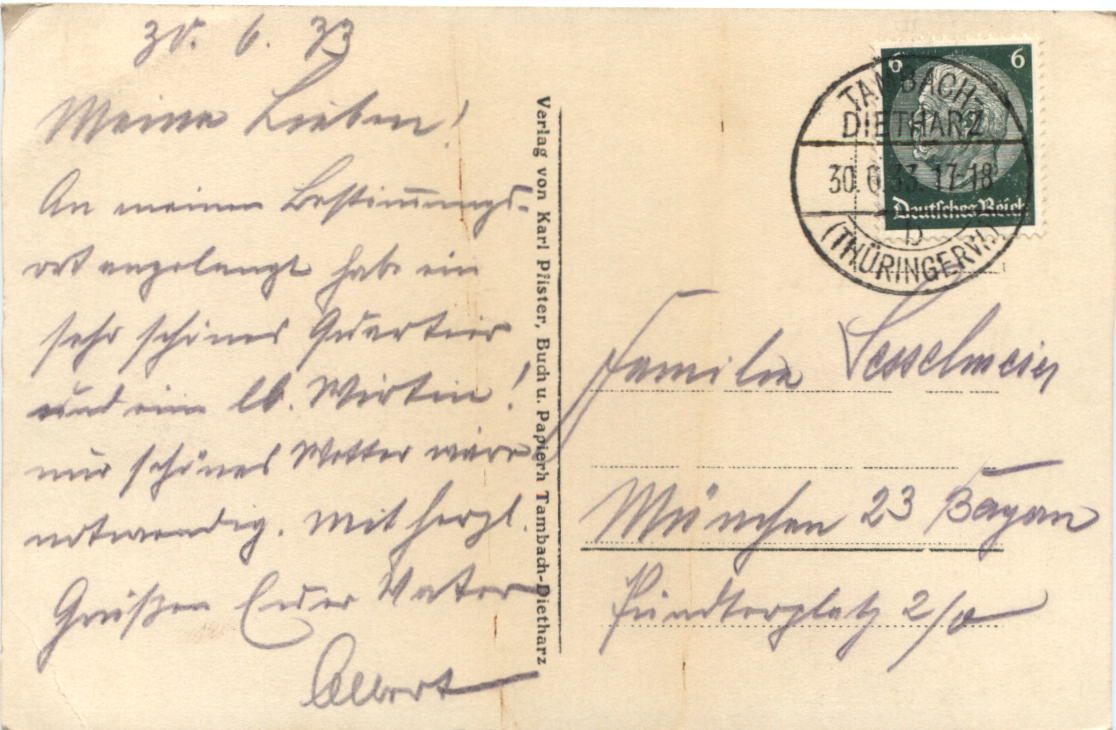 30. 6. 33
Meine Lieben!
An meinem Bestimmungs-
ort angelangt habe ein
sehr schönes Quartier
und eine lb. Wirtin!
nur schönes Wetter wäre
notwendig. Mit herzl.
Grüßen Euer Vater
Albert
Verlag von Karl Pfister, Buch u. Papierh Tambach-Dietharz
6 6
Deutsches Reich
TAMBACH-
DIETHARZ
30.6.33.17-18
b
(THÜRINGERW.)
Familie Sesselmeier
München 23 Bayern
Fundterplatz 2/0